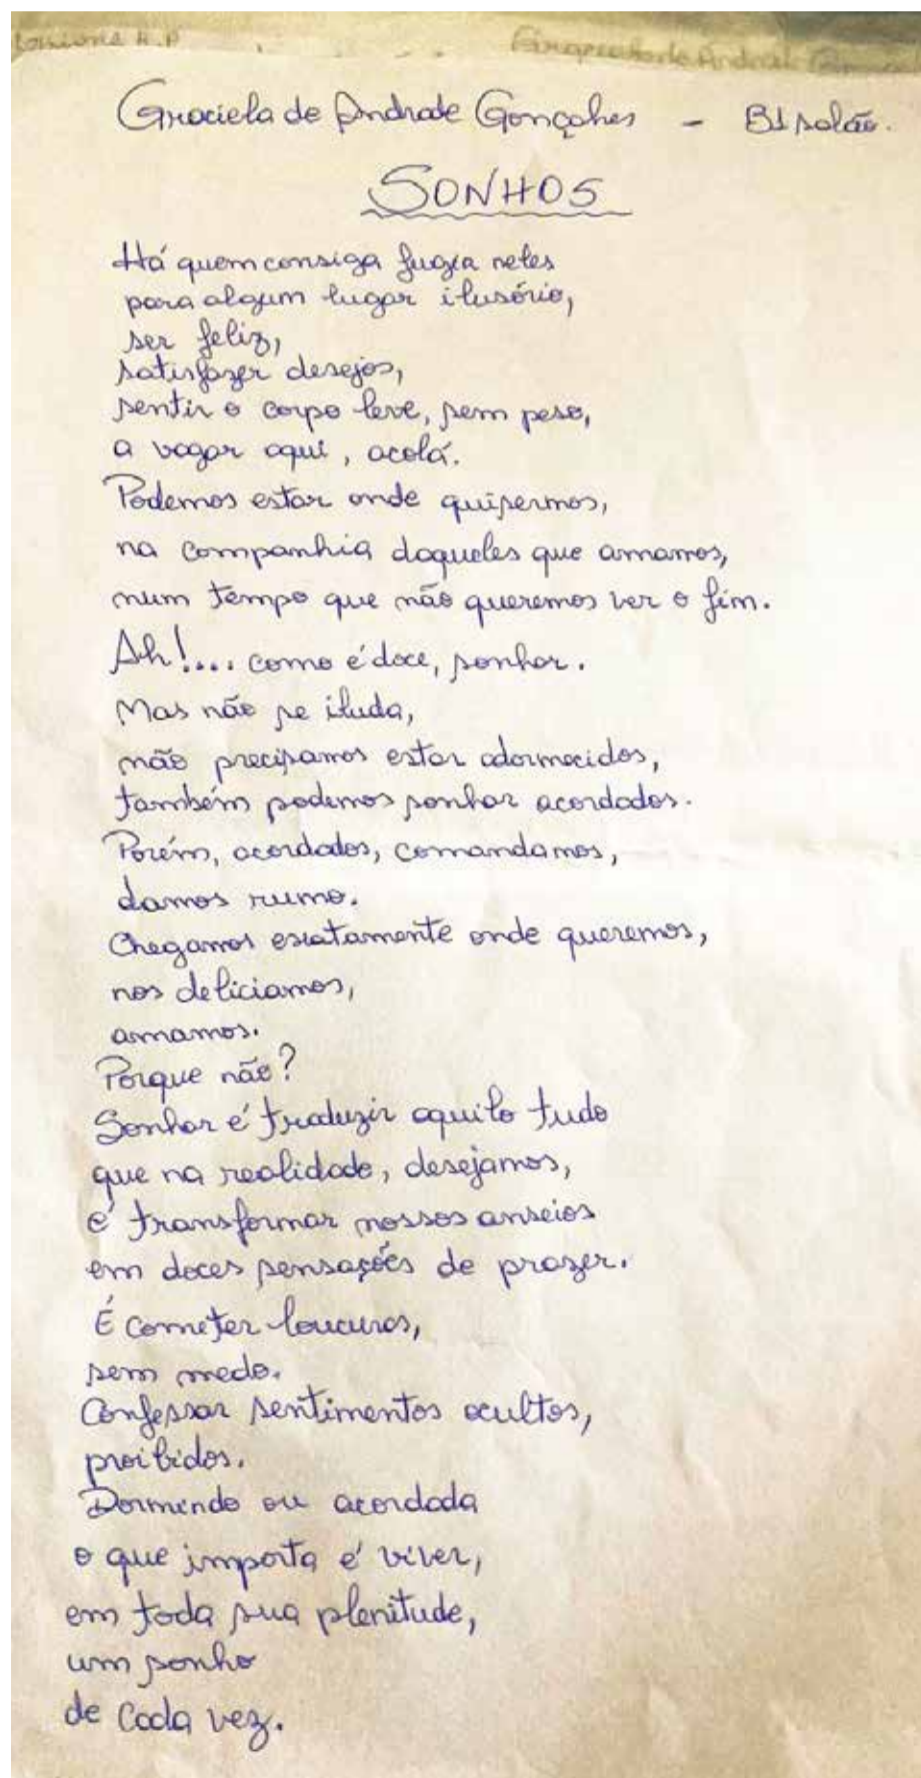 Graciela de Andrade Gonçalves - B1 salão.
SONHOS
Há quem consiga fugir neles
para algum lugar ilusório,
ser feliz,
satisfazer desejos,
sentir o corpo leve, sem peso,
a vagar aqui, acolá.
Podemos estar onde quisermos,
na companhia daqueles que amamos,
num tempo que não queremos ver o fim.
Ah!.... como é doce, sonhar.
Mas não se iluda,
não precisamos estar adormecidos,
também podemos sonhar acordados.
Porém, acordados, comandamos,
damos rumo.
Chegamos exatamente onde queremos,
nos deliciamos,
amamos.
Porque não?
Sonhar é traduzir aquilo tudo
que na realidade, desejamos,
é transformar nossos anseios
em doces sensações de prazer.
É cometer loucuras,
sem medo.
Confessar sentimentos ocultos,
proibidos.
Dormindo ou acordada
o que importa é viver,
em toda sua plenitude,
um sonho
de cada vez.